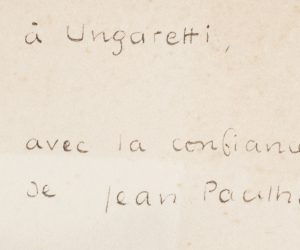 à Ungaretti,
avec la confiance
de Jean Paulh